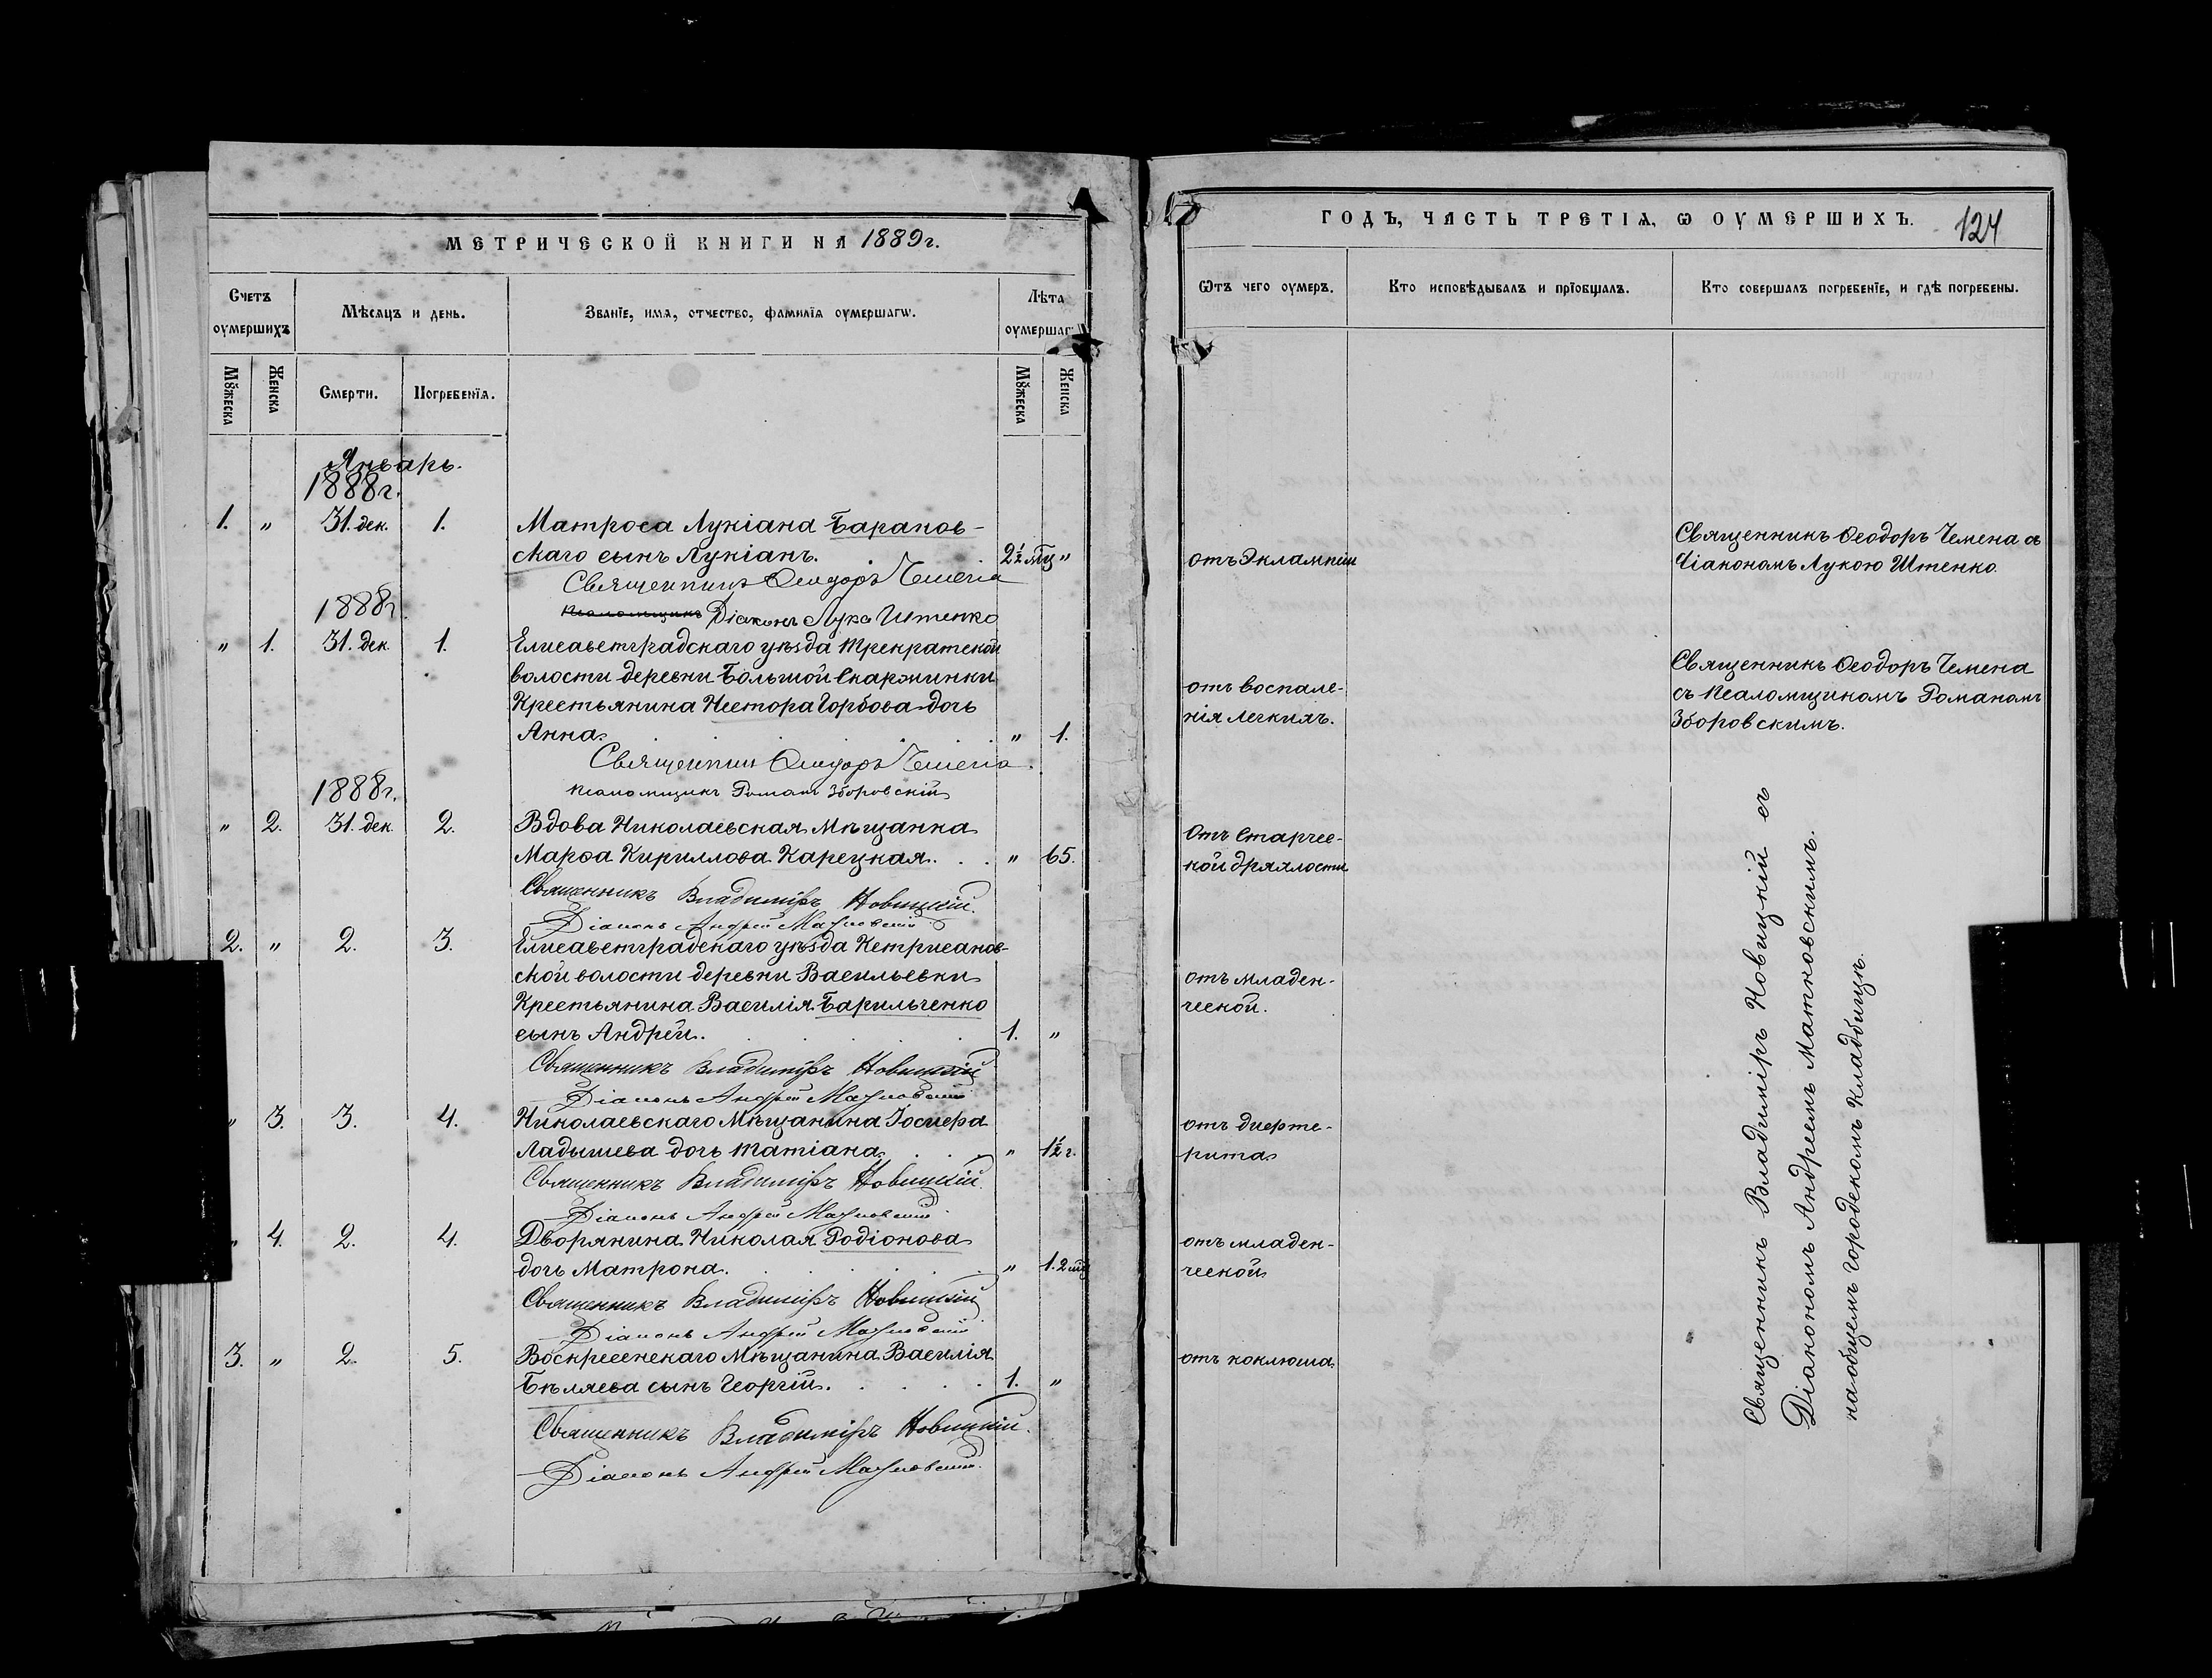 МЕТРИЧЕСКОЙ КНИГИ НА 1889 г.
Счетъ оумершихъ
Мѣсяцъ и день.
Званїе, имя, отчество, фамилїя оумершагѡ.
Лѣта оумершагѡ
Мꙋжеска
Женска
Смерти.
Погребенїя.
Мꙋжеска
Женска
Январь.
1888 г.
1. " 31. дек. 1. Матроса Лукіана Баранов-
скаго сынъ Лукіанъ. 2½ мц "
Священникъ Ѳеодоръ Чемена
Псаломщикъ Діаконъ Лука Штенко
1888 г.
" 1. 31. дек. 1. Елисаветградскаго уѣзда Трикратской
волости деревни Большой Скаржинки
Крестьянина Нестора Горбова дочь
Анна. " 1.
Священник Ѳеодоръ Чемена
Псаломщикъ Романъ Зборовскій
1888 г.
" 2. 31. дек. 2. Вдова Николаевская Мѣщанка
Марѳа Кириллова Карецкая. " 65.
Священникъ Владиміръ Новицкій.
Діаконъ Андрей Матковскій
2. " 2. 3. Елисаветградскаго уѣзда Кетрисанов-
ской волости деревни Васильевки
Крестьянина Василія Барильченко
сынъ Андрей. 1. "
Священникъ Владиміръ Новицкій
Діаконъ Андрей Матковскій
" 3. 3. 4. Николаевскаго Мѣщанина Іосифа
Ладышева дочь Татіана. " 1½ г.
Священникъ Владиміръ Новицкій.
Діаконъ Андрей Матковскій
" 4. 2. 4. Дворянина Николая Родіонова
дочь Матрона. " 1. 2 мц
Священникъ Владиміръ Новицкій
Діаконъ Андрей Матковскій
3. " 2. 5. Воскресенскаго Мѣщанина Василія
Бѣляева сынъ Георгій. 1. "
Священникъ Владиміръ Новицкій.
Діаконъ Андрей Матковскій.
ГОДЪ, ЧАСТЬ ТРЕТІѦ, Ѡ ОУМЕРШИХЪ.
124
Ѿтъ чего оумеръ.
Кто исповѣдывалъ и прїобщалъ.
Кто совершалъ погребенїе, и гдѣ погребены.
отъ Эклампсіи
Священникъ Ѳеодоръ Чемена съ
Діакономъ Лукою Штенко.
отъ воспале-
нія легкихъ.
Священникъ Ѳеодоръ Чемена
съ Псаломщикомъ Романомъ
Зборовскимъ.
Отъ старчес-
кой дряхлости
отъ младен-
ческой.
отъ дифте-
рита
отъ младен-
ческой
отъ коклюша
Священникъ Владиміръ Новицкій съ
Діакономъ Андреемъ Матковскимъ.
на общемъ городскомъ кладбищѣ.